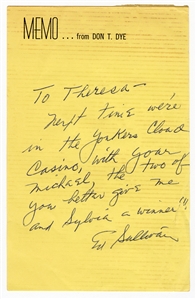 MEMO ... from DON T. DYE
To Theresa—
Next time we're
in the Yonkers Cloud
Casino, with your
Michael, the two of
you better give me
and Sylvia a winner!!
Ed Sullivan